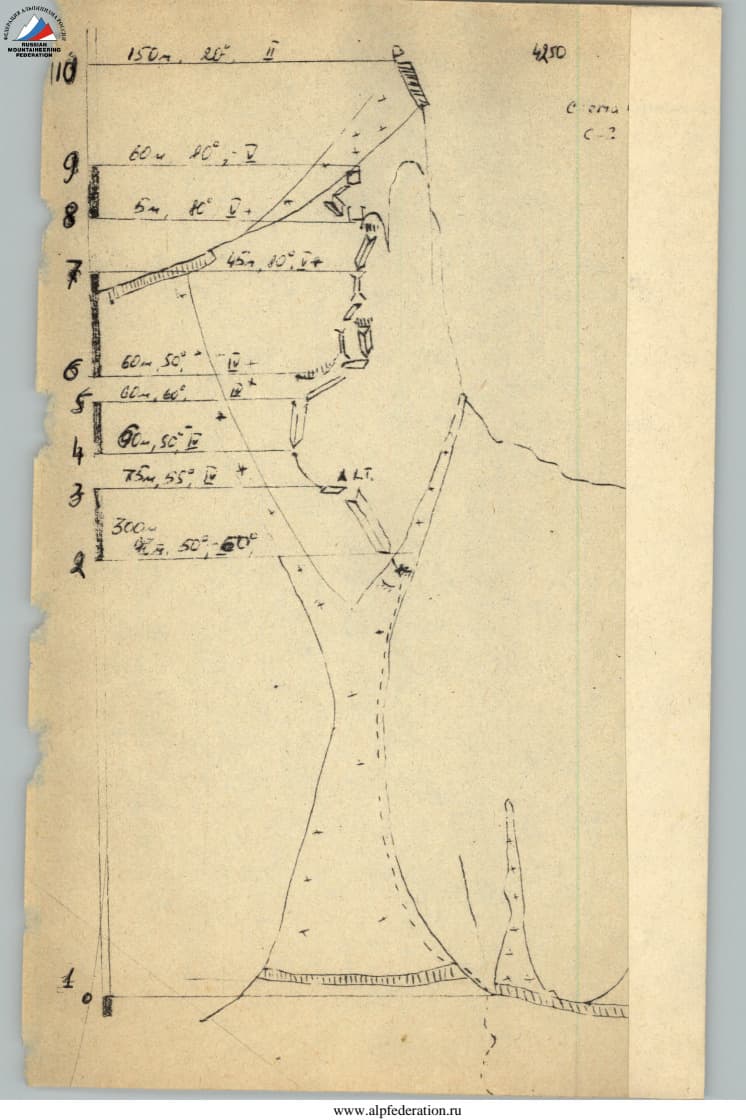 ФЕДЕРАЦИЯ АЛЬПИНИЗМА РОССИИ
RUSSIAN
MOUNTAINEERING
FEDERATION
10 150м, 20°, II 4250
С-2
9 60м 80°, -V
8 5м, 80° V+
7 45м, 80°, V+
6 60м, 50°, IV+
5 60м, 60°, IV+
4 60м, 50°, IV
3 75м, 55°, IV
300м
50°, 60°
2
1
0
www.alpfederation.ru